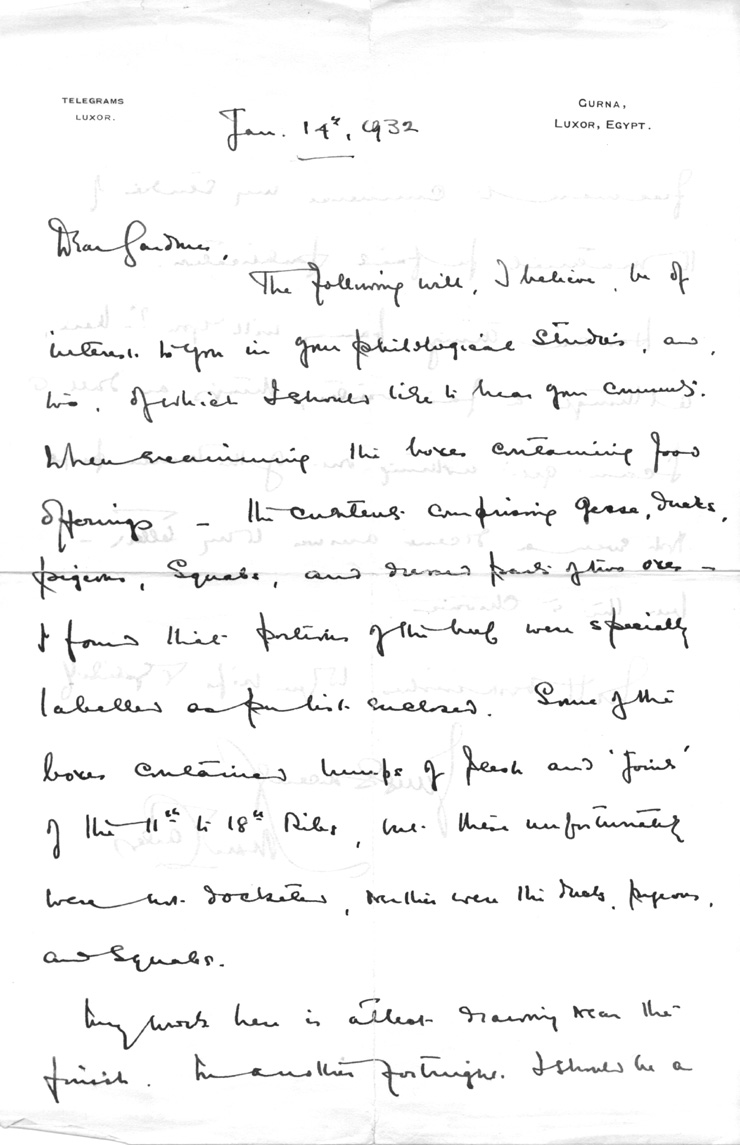 TELEGRAMS
LUXOR.
GURNA,
LUXOR, EGYPT.
Jan. 14th, 1932
Dear Gardiner,
The following will, I believe, be of
interest to you in your philological studies, and,
too, of which I should like to hear your comments.
When examining the boxes containing food
offerings — the contents comprising geese, ducks,
pigeons, squabs, and dressed parts of two oxes —
I found that portions of the beef were specially
labelled as per list enclosed. Some of the
boxes contained lumps of flesh and 'joints'
of the 11th to 18th Ribs, but these unfortunately
were not docketed, neither were the ducks, pigeons,
and squabs.
My work here is at last drawing near the
finish. In another fortnight I should be a